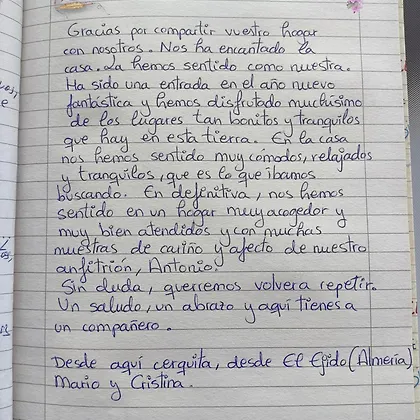 Gracias por compartir vuestro hogar
con nosotros. Nos ha encantado la
casa. La hemos sentido como nuestra.
Ha sido una entrada en el año nuevo
fantástica y hemos disfrutado muchísimo
de los lugares tan bonitos y tranquilos
que hay en esta tierra. En la casa
nos hemos sentido muy cómodos, relajados
y tranquilos, que es lo que íbamos
buscando. En definitiva, nos hemos
sentido en un hogar muy acogedor y
muy bien atendidos y con muchas
muestras de cariño y afecto de nuestro
anfitrión, Antonio.
Sin duda, querremos volver a repetir.
Un saludo, un abrazo y aquí tienes a
un compañero.
Desde aquí cerquita, desde El Ejido (Almería)
Mario y Cristina.